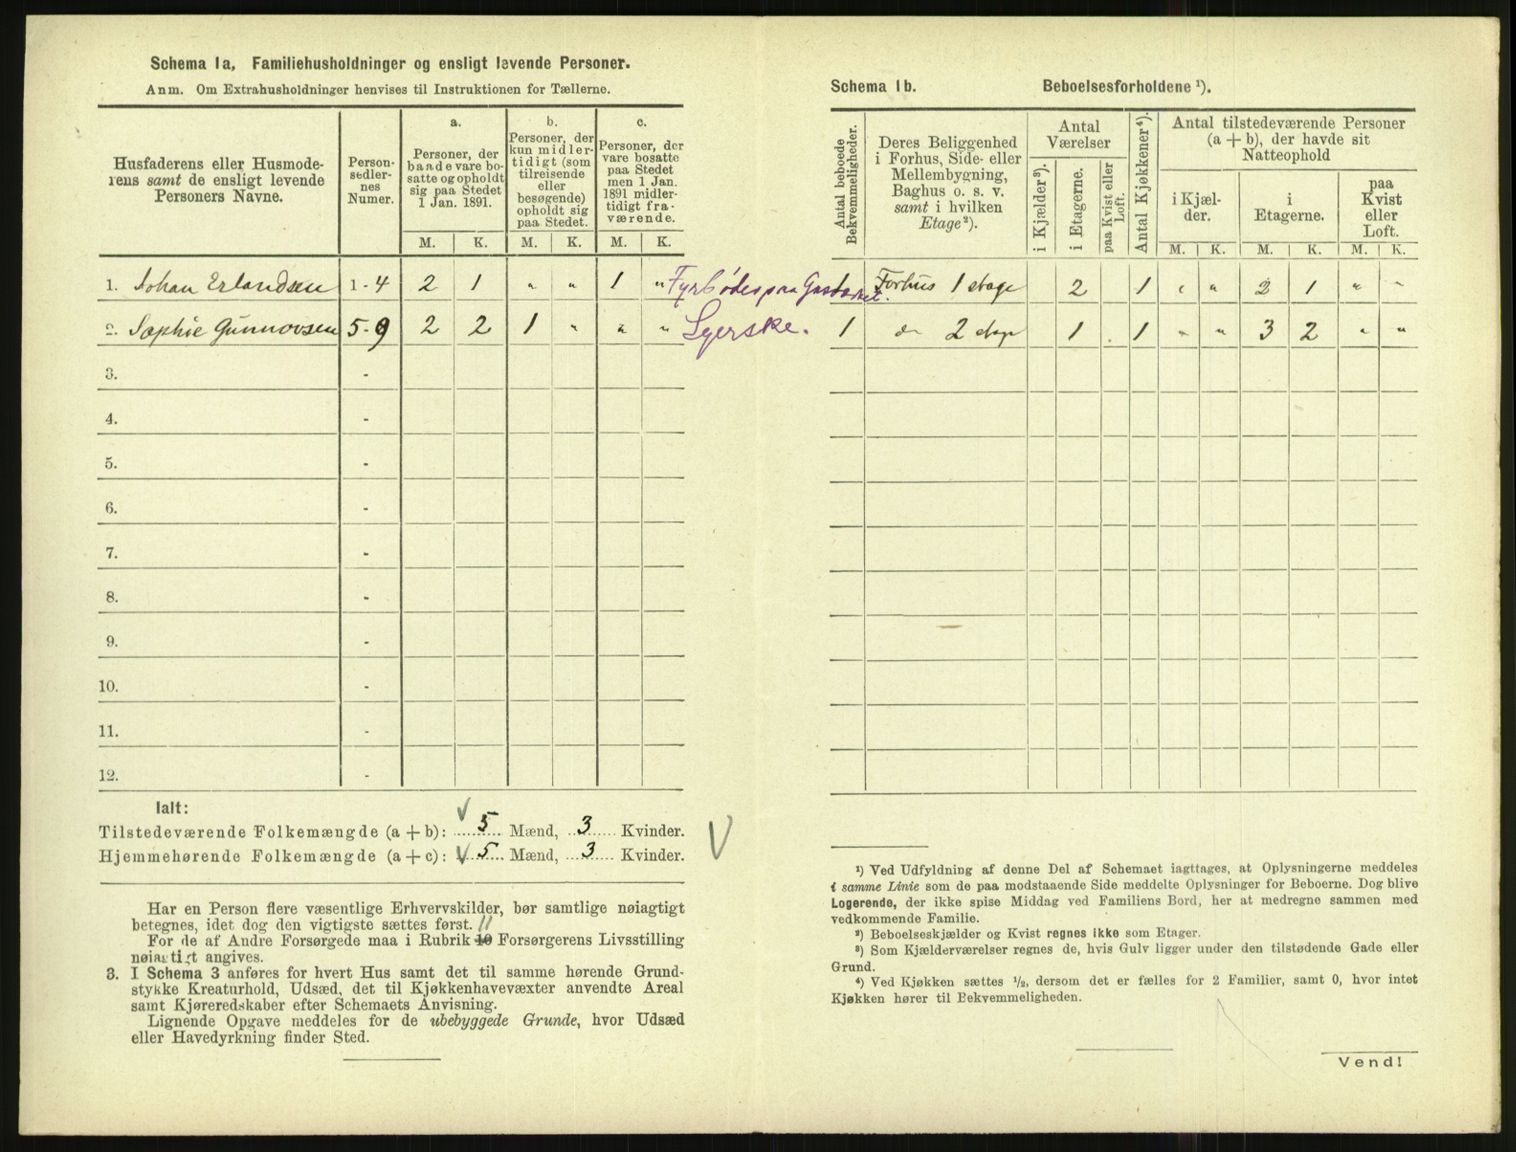 Schema 1a, Familiehusholdninger og ensligt levende Personer.
Anm. Om Extrahusholdninger henvises til Instruktionen for Tællerne.
Husfaderens eller Husmode-
rens samt de ensligt levende
Personers Navne.
Person-
sedler-
nes
Numer.
a.
Personer, der
baade vare bo-
satte og opholdt
sig paa Stedet
1 Jan. 1891.
b.
Personer, der
kun midler-
tidigt (som
tilreisende
eller
besøgende)
opholdt sig
paa Stedet.
c.
Personer, der
vare bosatte
paa Stedet
men 1 Jan.
1891 midler-
tidigt fra-
værende.
M. K. M. K. M. K.
1. Johan Erlandsen 1-4 2 1 " " 1 " Fyrbøder paa Gasværket.
2. Sophie Gunnovsen 5-9 2 2 1 " " " Syerske.
3. -
4. -
5. -
6. -
7. -
8. -
9. -
10. -
11. -
12. -
Ialt:
Tilstedeværende Folkemængde (a + b): 5 Mænd, 3 Kvinder.
Hjemmehørende Folkemængde (a + c): 5 Mænd, 3 Kvinder.
Har en Person flere væsentlige Erhvervskilder, bør samtlige nøiagtigt
betegnes, idet dog den vigtigste sættes først.
For de af Andre Forsørgede maa i Rubrik 10 11 Forsørgerens Livsstilling
nøiagtigt angives.
3. I Schema 3 anføres for hvert Hus samt det til samme hørende Grund-
stykke Kreaturhold, Udsæd, det til Kjøkkenhavevæxter anvendte Areal
samt Kjøreredskaber efter Schemaets Anvisning.
Lignende Opgave meddeles for de ubebyggede Grunde, hvor Udsæd
eller Havedyrkning finder Sted.
Schema 1b. Beboelsesforholdene ¹).
Antal beboede
Bekvemmeligheder.
Deres Beliggenhed
i Forhus, Side- eller
Mellembygning,
Baghus o. s. v.
samt i hvilken
Etage²).
Antal
Værelser
i Kjælder³).
i Etagerne.
paa Kvist eller
Loft.
Antal Kjøkkener⁴).
Antal tilstedeværende Personer
(a + b), der havde sit
Natteophold
i Kjæl-
der.
i
Etagerne.
paa
Kvist
eller
Loft.
M. K. M. K. M. K.
Forhus 1 etage 2 1 " " 2 1 " "
1 do 2 etage 1 1 " " 3 2 " "
¹) Ved Udfyldning af denne Del af Schemaet iagttages, at Oplysningerne meddeles
i samme Linie som de paa modstaaende Side meddelte Oplysninger for Beboerne. Dog blive
Logerende, der ikke spise Middag ved Familiens Bord, her at medregne sammen med
vedkommende Familie.
²) Beboelseskjælder og Kvist regnes ikke som Etager.
³) Som Kjælderværelser regnes de, hvis Gulv ligger under den tilstødende Gade eller
Grund.
⁴) Ved Kjøkken sættes ½, dersom det er fælles for 2 Familier, samt 0, hvor intet
Kjøkken hører til Bekvemmeligheden.
Vend!